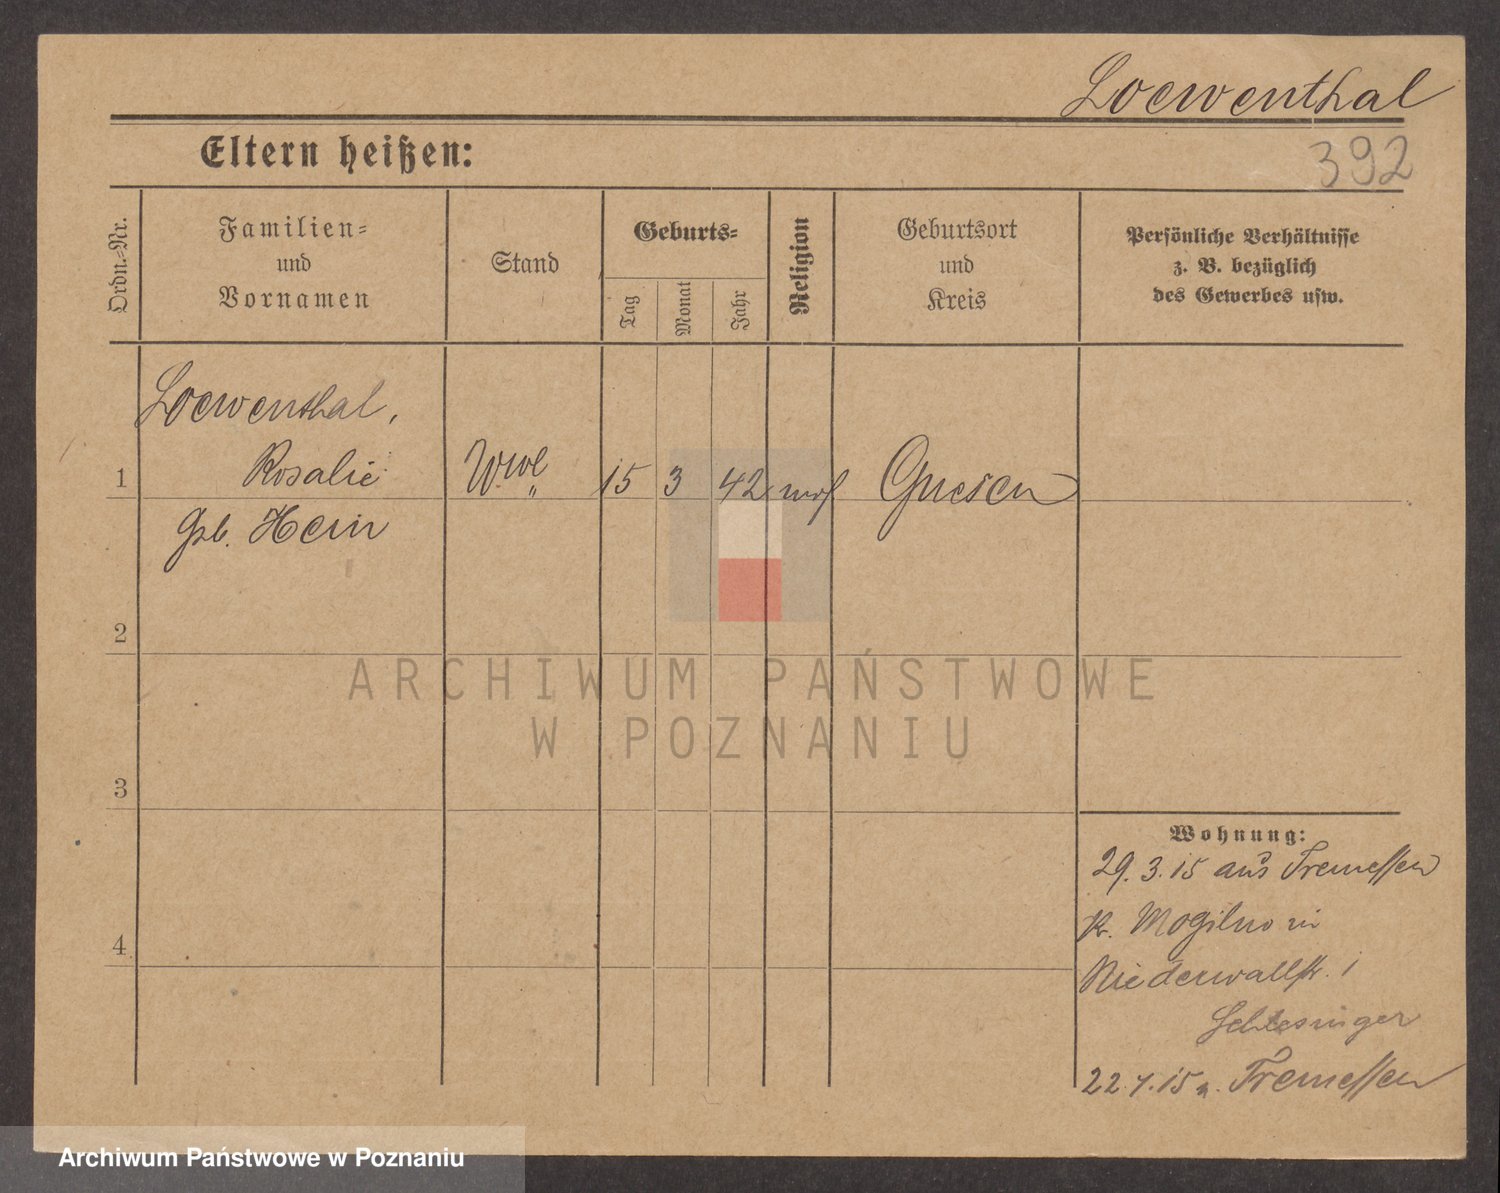 Loewenthal
392
Eltern heißen:
Ordn.-Nr.
Familien-
und
Vornamen
Stand
Geburts-
Tag
Monat
Jahr
Religion
Geburtsort
und
Kreis
Persönliche Verhältnisse
z. B. bezüglich
des Gewerbes usw.
Loewenthal,
1 Rosalie Wwe 15 3 42 mos Gnesen
geb. Hein
2
3
4
Wohnung:
29.3.15 aus Tremessen
Kr. Mogilno in
Niederwallstr. 1
Schlesinger
22.4.15 n. Tremessen
ARCHIWUM PAŃSTWOWE
W POZNANIU
Archiwum Państwowe w Poznaniu